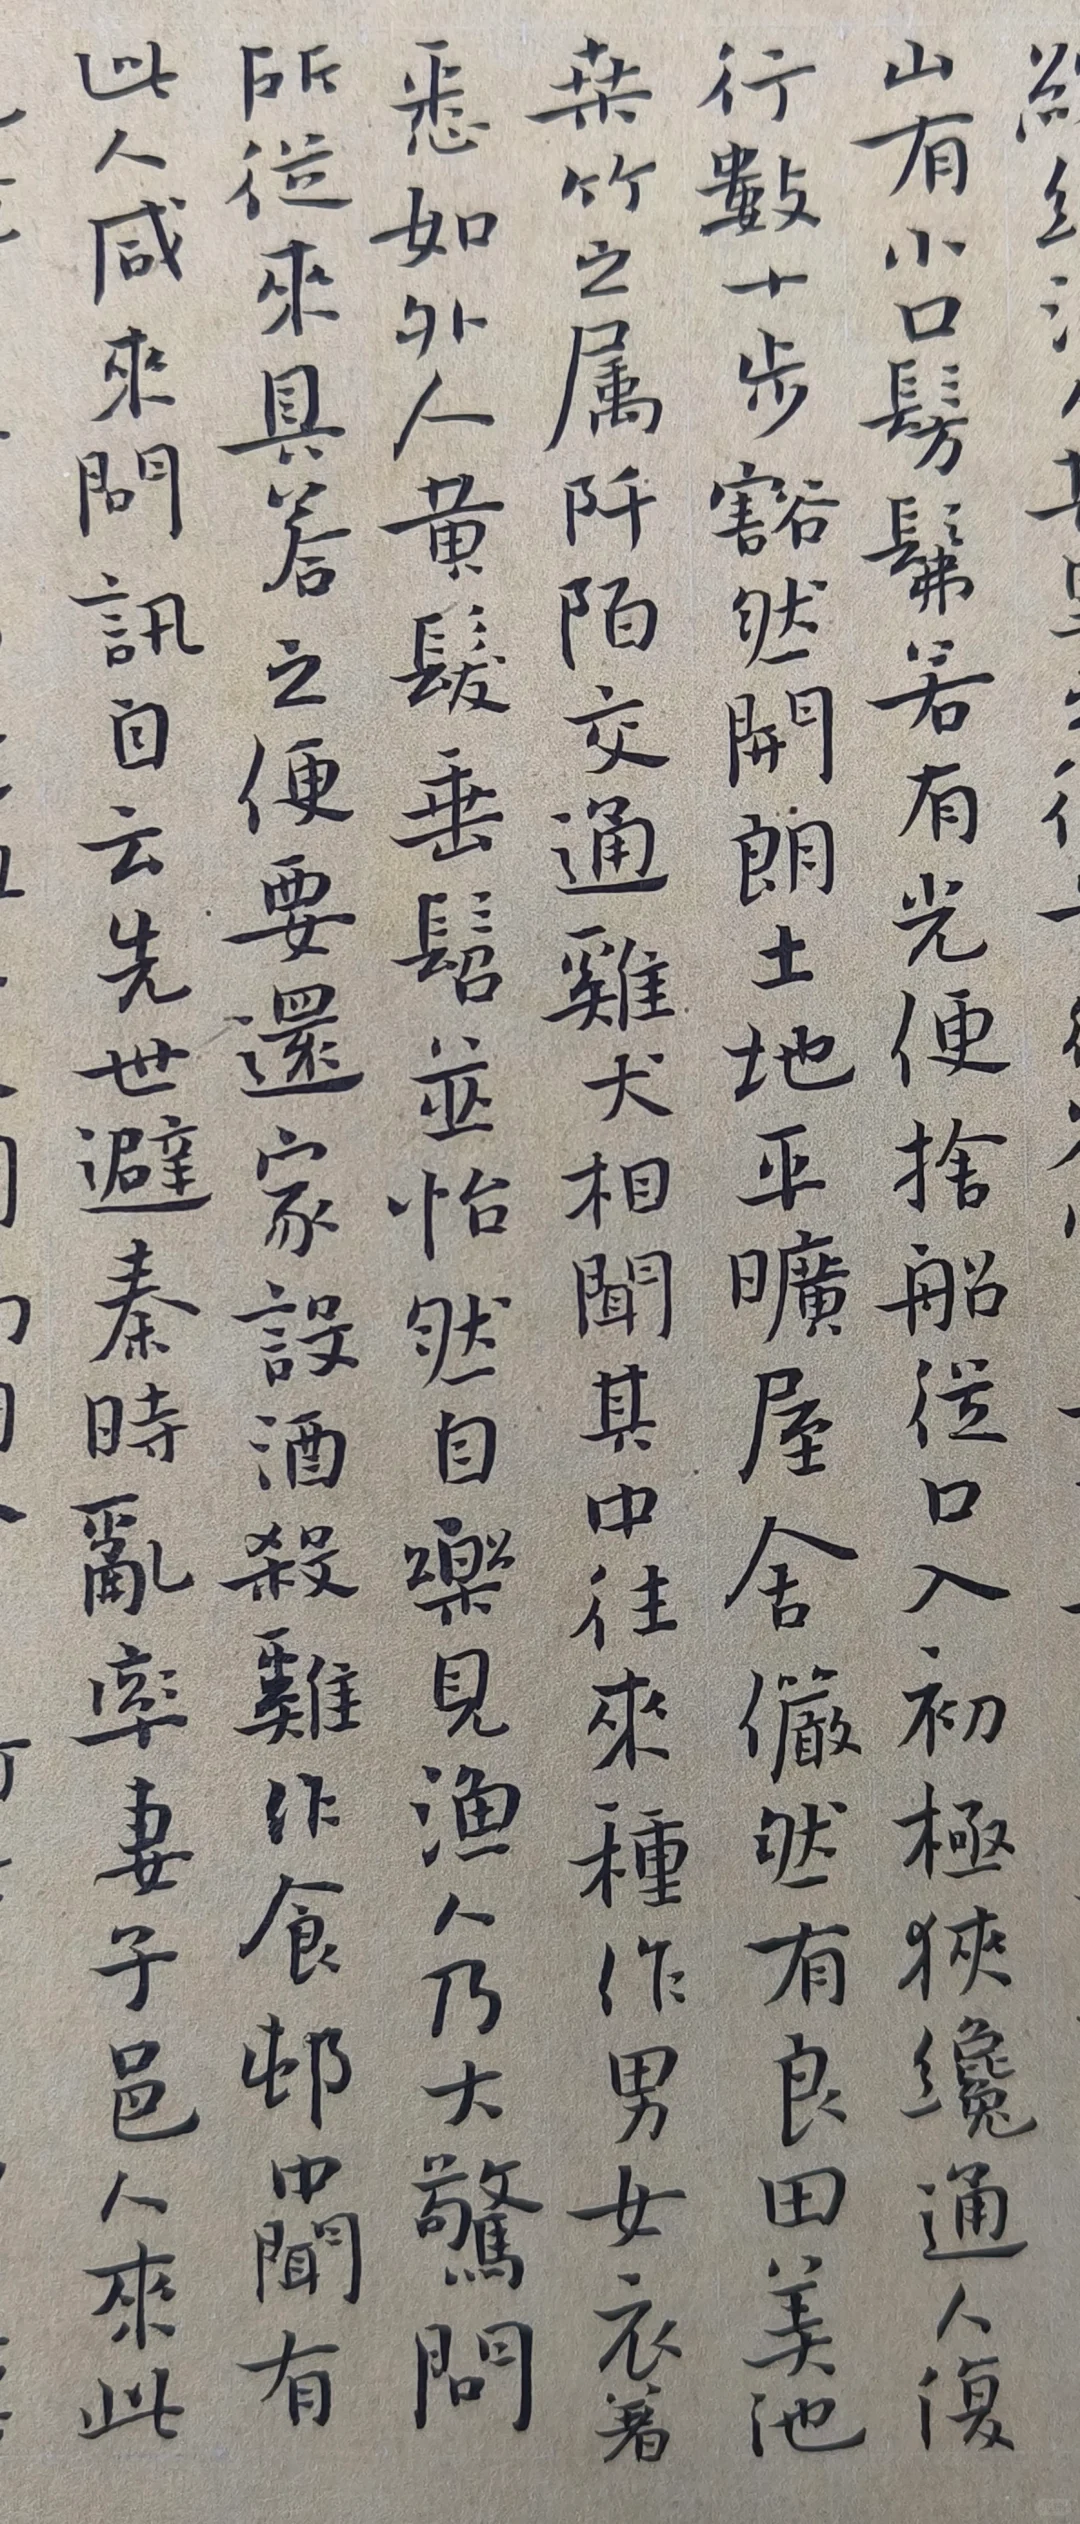 山有小口髣髴若有光便捨船從口入初極狹纔通人復
行數十步豁然開朗土地平曠屋舍儼然有良田美池
桒竹之属阡陌交通雞犬相聞其中往來種作男女衣著
悉如外人黃髮垂髫並怡然自樂見漁人乃大驚問
所從來具荅之便要還家設酒殺雞作食邨中聞有
此人咸來問訊自云先世避秦時亂率妻子邑人來此